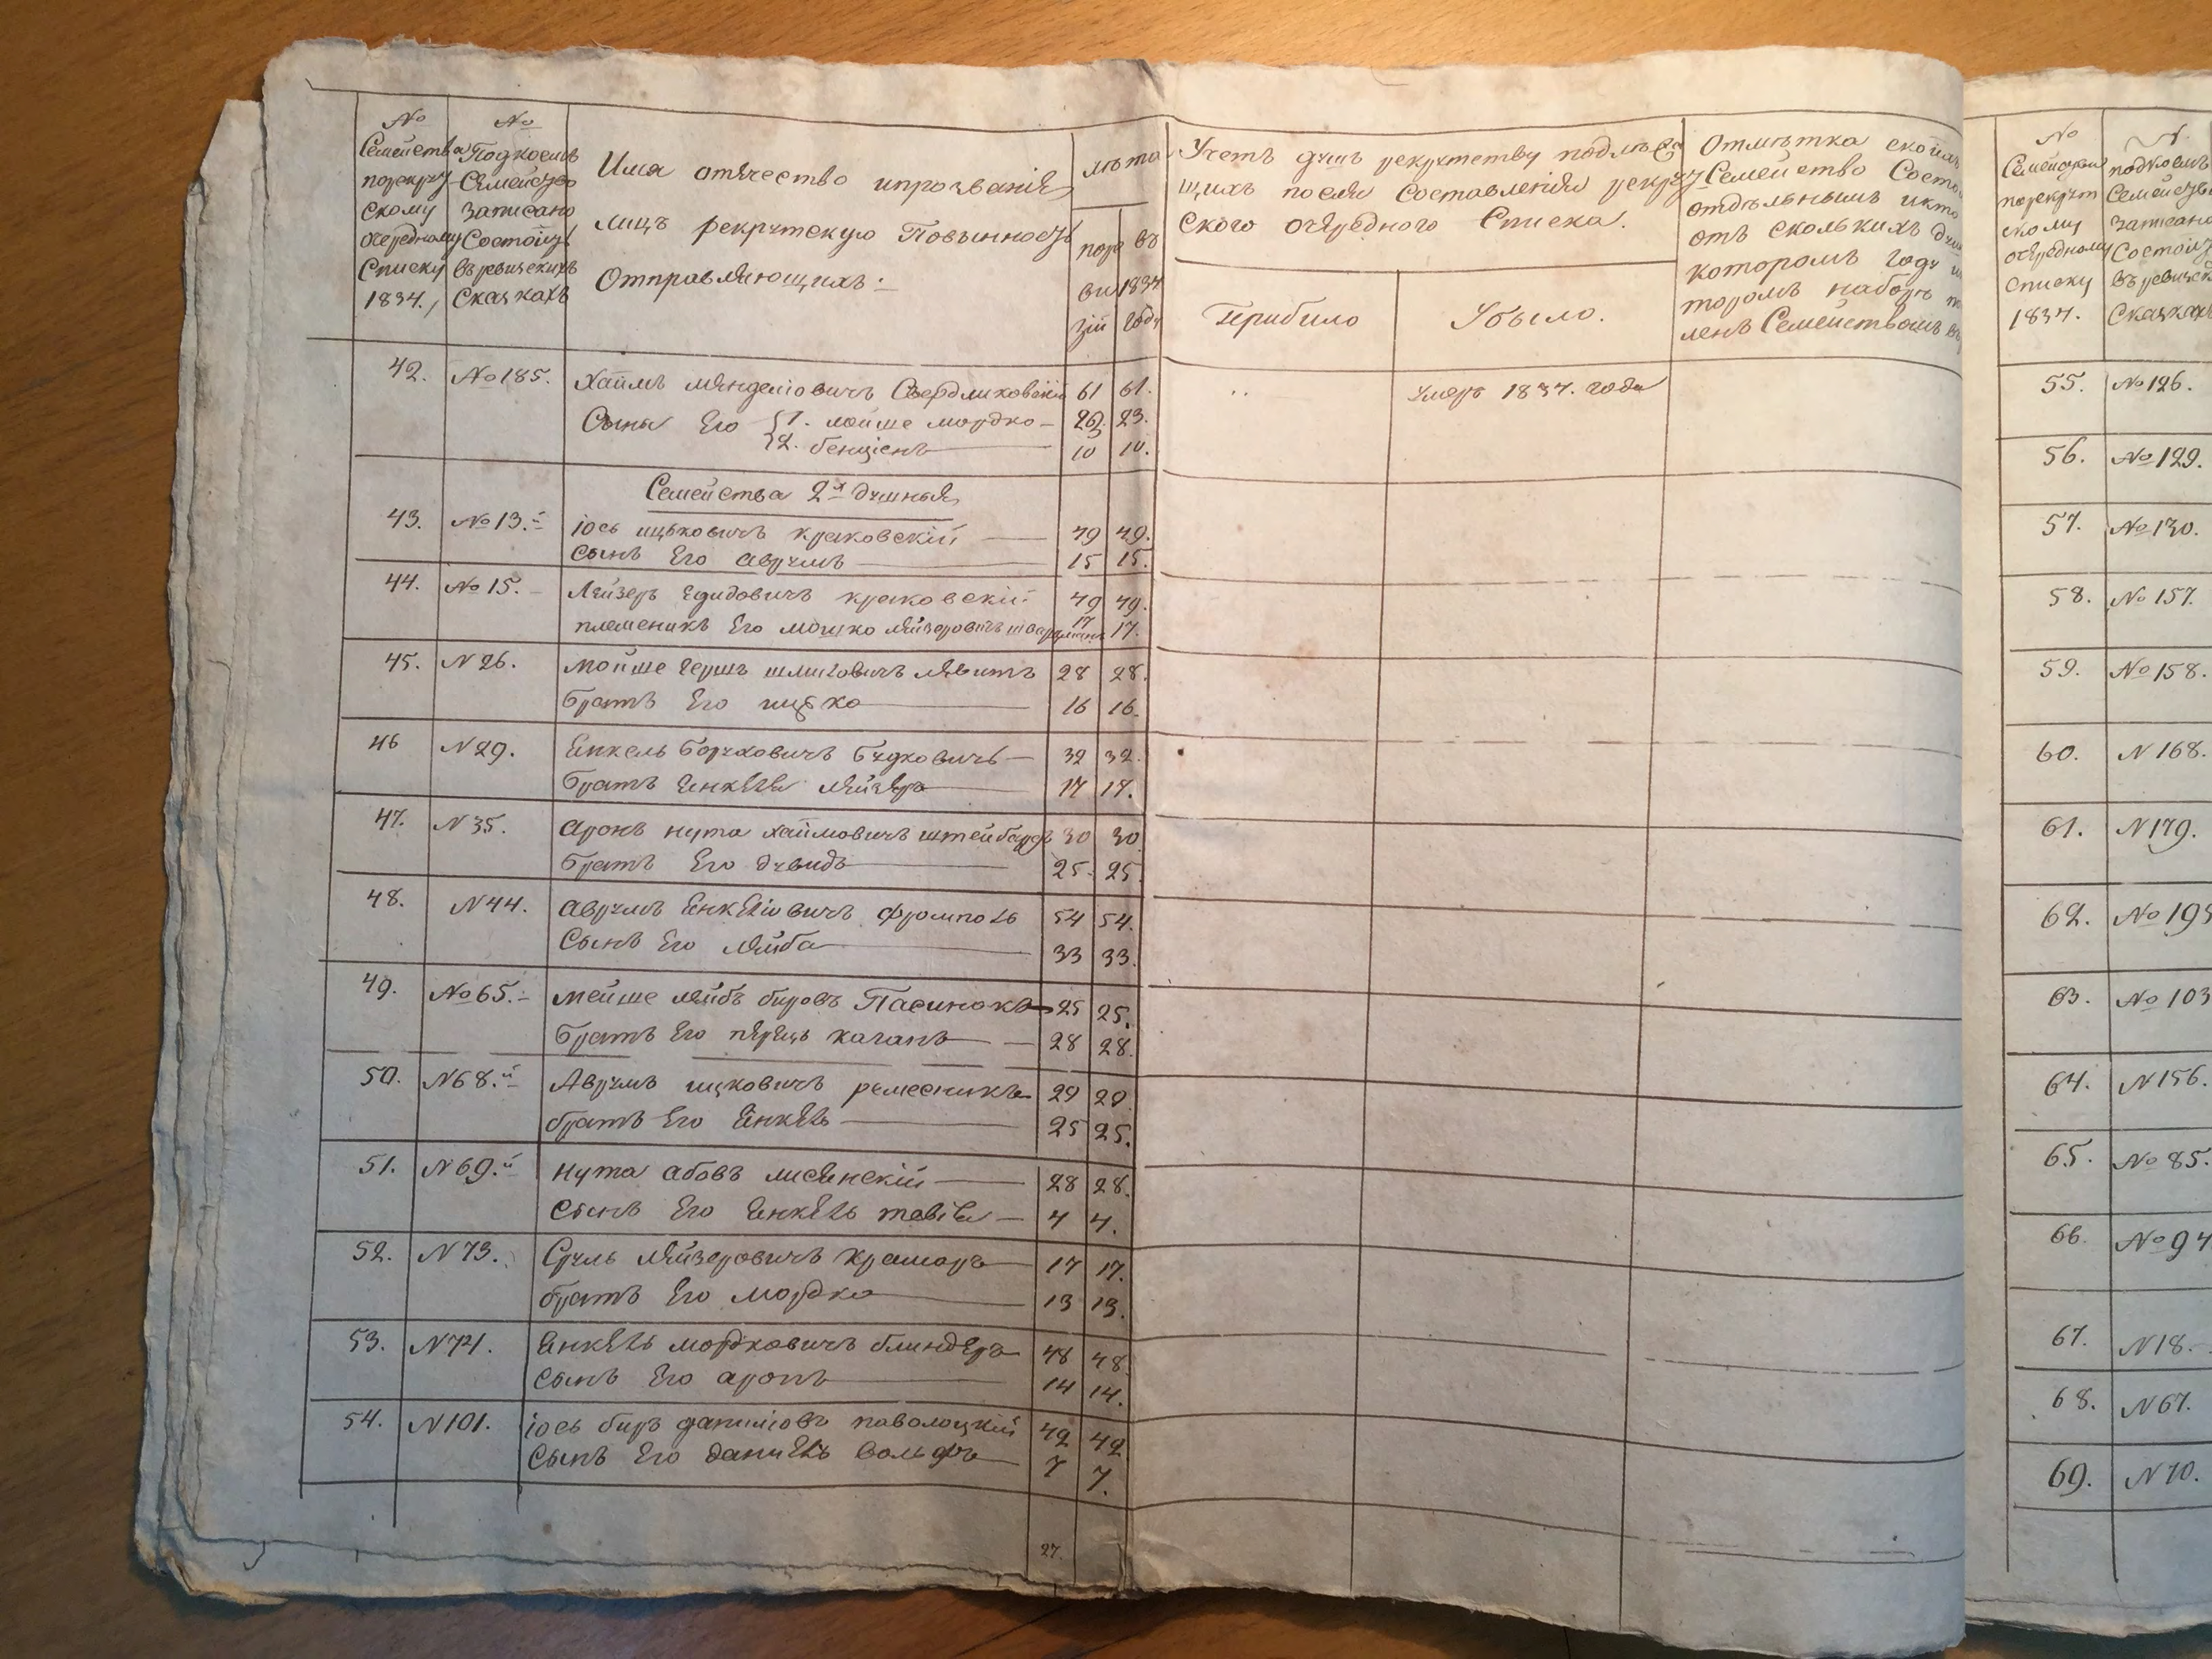 №
Семейства
по рекрут-
скому
очередному
Списку
1834.,
№
Под коемъ
Семейство
записано
Состоитъ
въ ревизскихъ
Сказкахъ
Имя отчество и прозванія
лицъ рекрутскую Повынность
Отправляющихъ:
лѣта
по ре
ви
зіи
въ
1834
году
Учетъ душъ рекрутству подлежа
щихъ послѣ Составленія рекрут
ского очередного Списка.
Прибыло
Убыло.
Отмѣтка
Семейство Состо
отдѣльнымъ и кто
отъ сколькихъ душ
которомъ году и
торомъ наборѣ
ленъ Семействомъ
42. №185. Хаимъ Менделіовичъ Свердликовскій 61 61. умеръ 1837. года
Сыны Его 1. мойше мордко 23.
2. бенціенъ 10 10.
Семейства 2х душныя
43. №13.й іось ицковичъ краковскій 49 49.
Сынъ Его аврумъ 15 15.
44. №15. Лейзеръ Едидовичъ краковскій 49 49.
племеникъ Его мошко лейзеровичъ 17 17.
45. N26. мойше гершъ шлиіовичъ левитъ 28 28.
братъ Его ицко 16 16.
46 N29. Енкель боруховичъ будковичъ 32 32.
братъ Енкеля лейзеръ 17 17.
47. N35. аронъ нута хаимовичъ 30 30
братъ Его дувидъ 25. 25
48. N44. аврумъ Енкеліовичъ фромполь 54 54.
Сынъ Его лейба 33 33.
49. №65. мейше лейбъ беровъ Пасинокъ 25 25.
братъ Его перецъ каганъ 28 28.
50. N68.й Аврумъ ицковичъ ремесникъ 29 29.
братъ Его Енкель 25 25.
51. N69.й нута абовъ лисянскій 28 28.
Сынъ Его Енкель тевіе 4 4.
52. N73. Сруль лейзеровичъ крамаръ 17 17.
братъ Его мордко 13 13.
53. N74. Енкель мордковичъ блиндеръ 48 48
Сынъ Его аронъ 14 14.
54. N101. іось беръ даниліовъ паволоцкій 42 42
Сынъ Его даниель вольфъ 7 7.
27.
№
Семейства
по рекрут
скому
очередному
Списку
1834.
подъ коемъ
Семейство
записано
Состоитъ
въ ревизск
Сказкахъ
55. №126.
56. №129.
57. №130.
58. №157.
59. №158.
60. N168.
61. N179.
62. №195
63. №103
64. N156.
65. №85.
66. №94
67. N18.
68. N67.
69. N70.